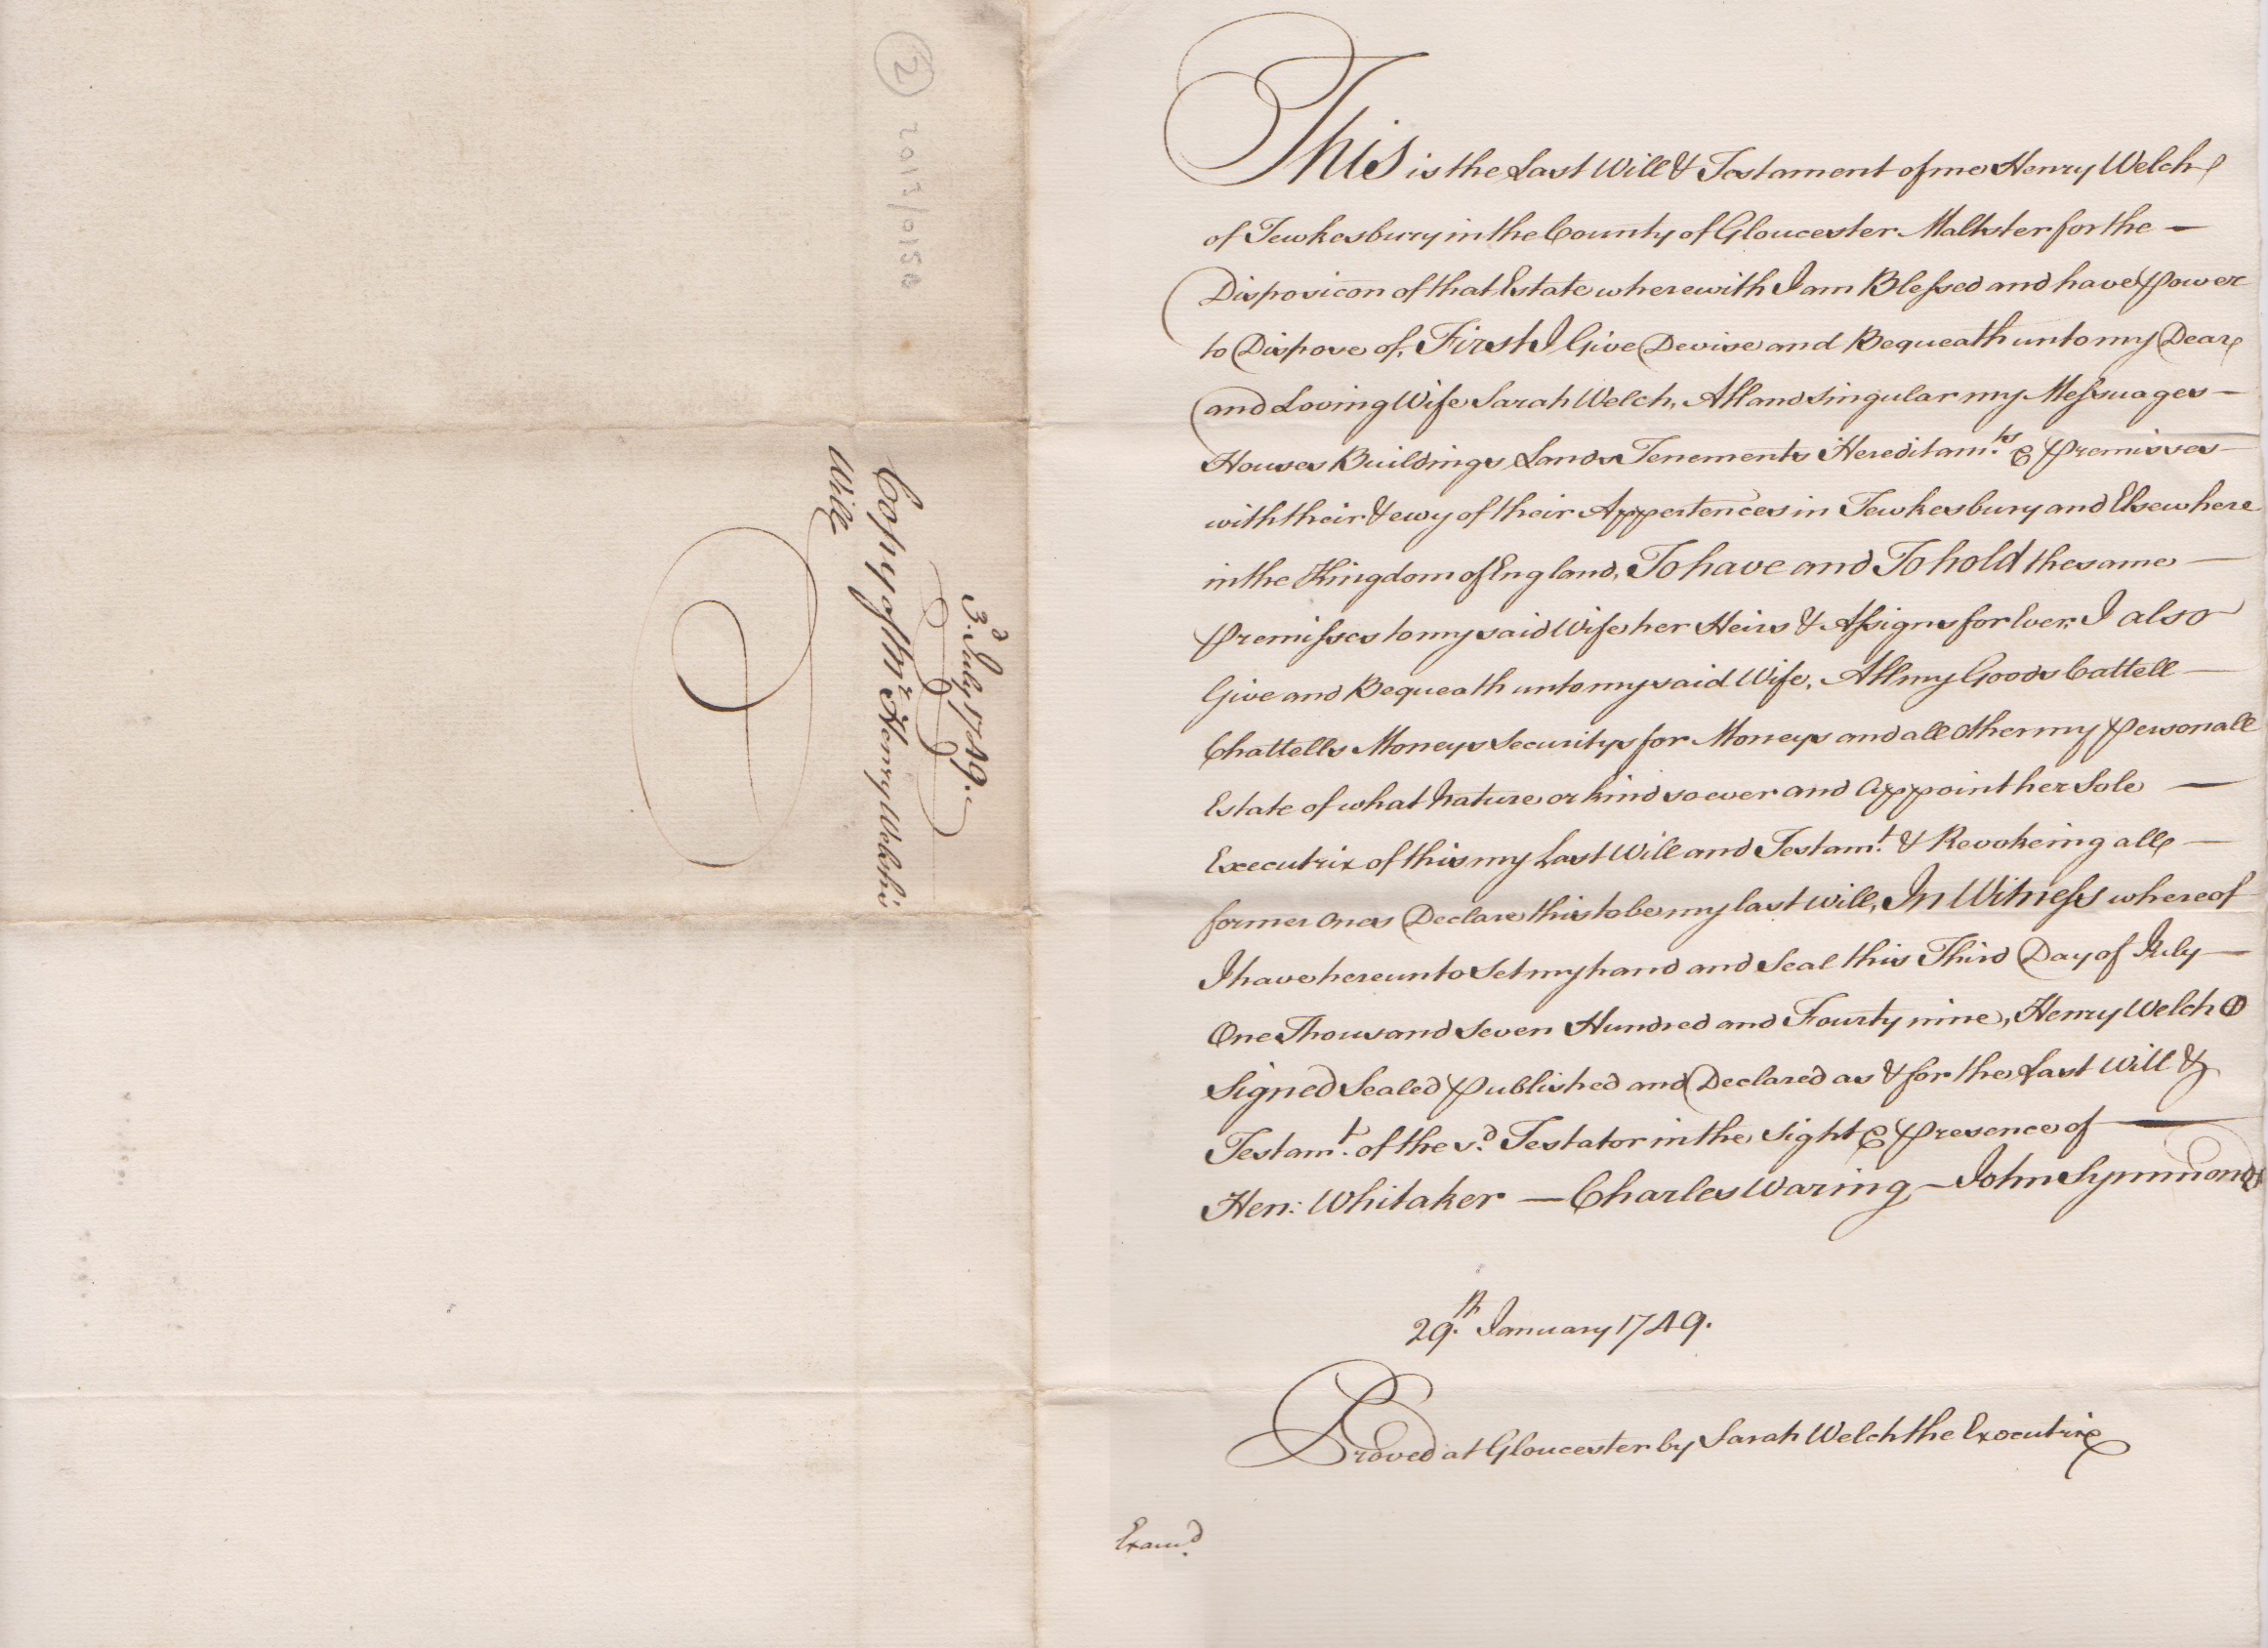 2
2013/0150
3.d July 1749.
Copy of Mr. Henry Welch's
Will
This is the Last Will & Testament of me Henry Welch
of Tewkesbury in the County of Gloucester Maltster for the —
Disposicon of that Estate wherewith I am Blessed and have power
to Dispose of, First I Give Devise and Bequeath unto my Dear
and Loving Wife Sarah Welch, All and Singular my Messuages —
Houses Buildings Lands Tenements Hereditam.ts & premisses —
with their & ewy of their Appertences in Tewkesbury and Elsewhere
in the Kingdom of England, To have and To hold the same —
premisses to my said Wife her Heirs & Assigns for Ever. I also
Give and Bequeath unto my said Wife, All my Goods Cattell —
Chattells Moneys Securitys for Moneys and all other my personall
Estate of what Nature or kind soever and Appoint her Sole —
Executrix of this my Last Will and Testam.t & Revokeing all —
former ones Declare this to be my last will, In Witness whereof
I have hereunto Set my hand and Seal this Third Day of July —
One Thousand Seven Hundred and Fourty nine, Henry Welch
Signed Sealed published and Declared as & for the Last Will &
Testam.t of the s.d Testator in the Sight & presence of —
Hen: Whitaker — Charles Waring — John Symmonds
29.th January 1749.
Proved at Gloucester by Sarah Welch the Executrix
Exam.d